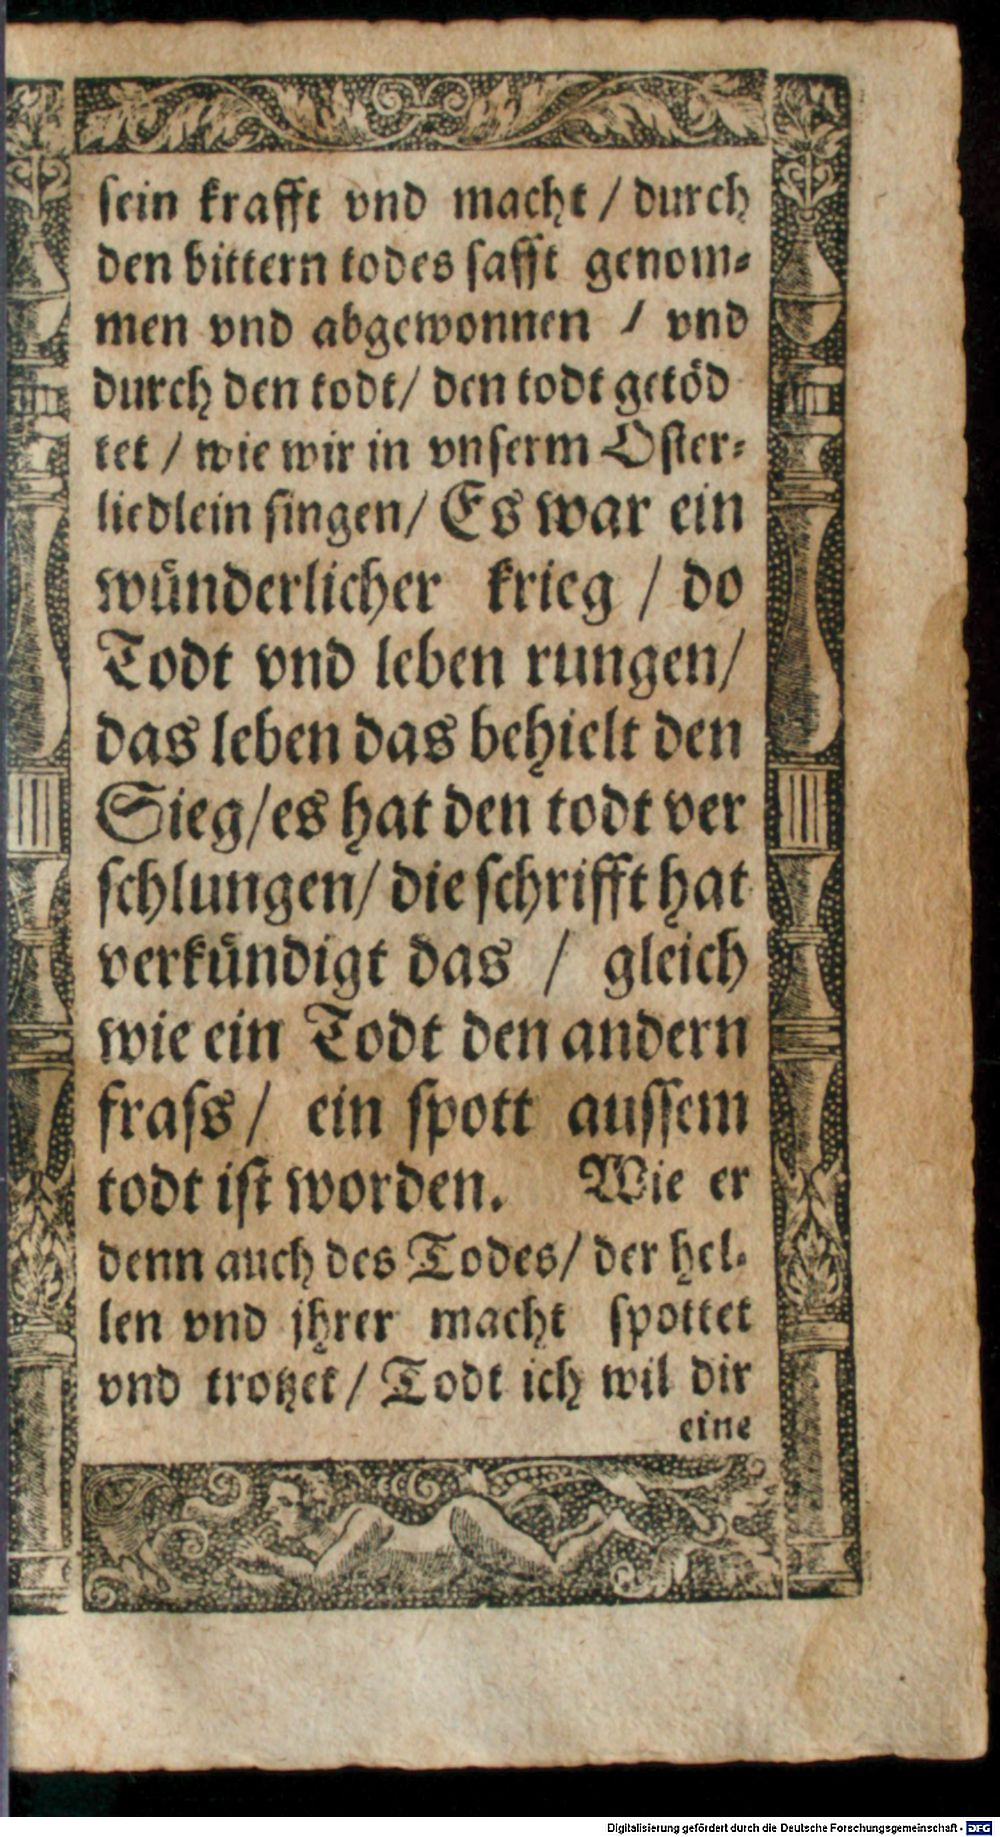 sein krafft vnd macht / durch
den bittern todes safft genom⸗
men vnd abgewonnen / vnd
durch den todt / den todt getöd
tet / wie wir in vnserm Oster⸗
liedlein singen / Es war ein
wünderlicher krieg / do
Todt vnd leben rungen /
das leben das behielt den
Sieg / es hat den todt ver
schlungen / die schrifft hat
verkündigt das / gleich
wie ein Todt den andern
frass / ein spott aussem
todt ist worden. Wie er
denn auch des Todes / der hel⸗
len vnd jhrer macht spottet
vnd trotzet / Todt ich wil dir
eine
Digitalisierung gefördert durch die Deutsche Forschungsgemeinschaft - DFG